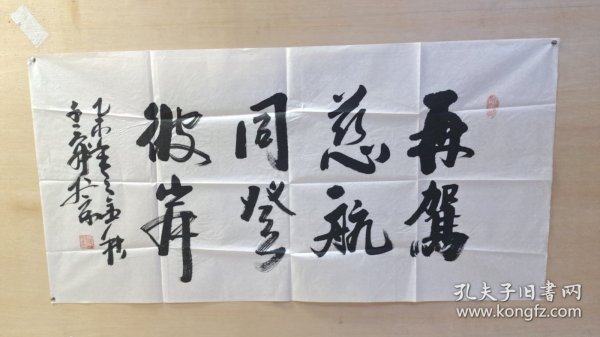 再駕
慈航
同登
彼岸
乙未
孔夫子旧书网
www.kongfz.com